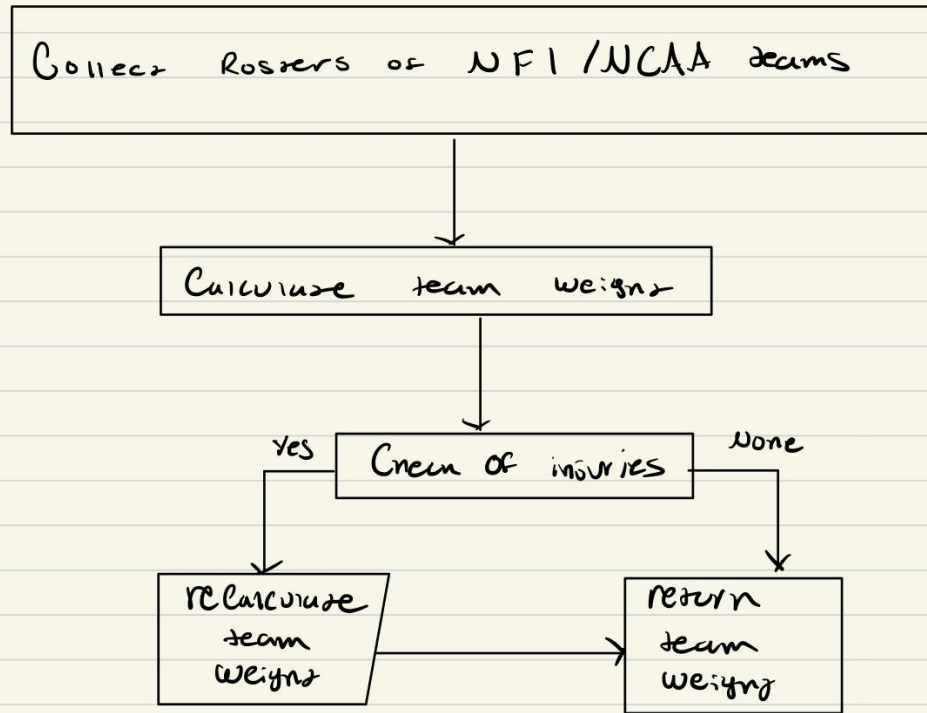 Collect Rosters of NFl /NCAA teams
Calculate team weight
Yes
Check of injuries
None
recalculate
team
weight
return
team
weight